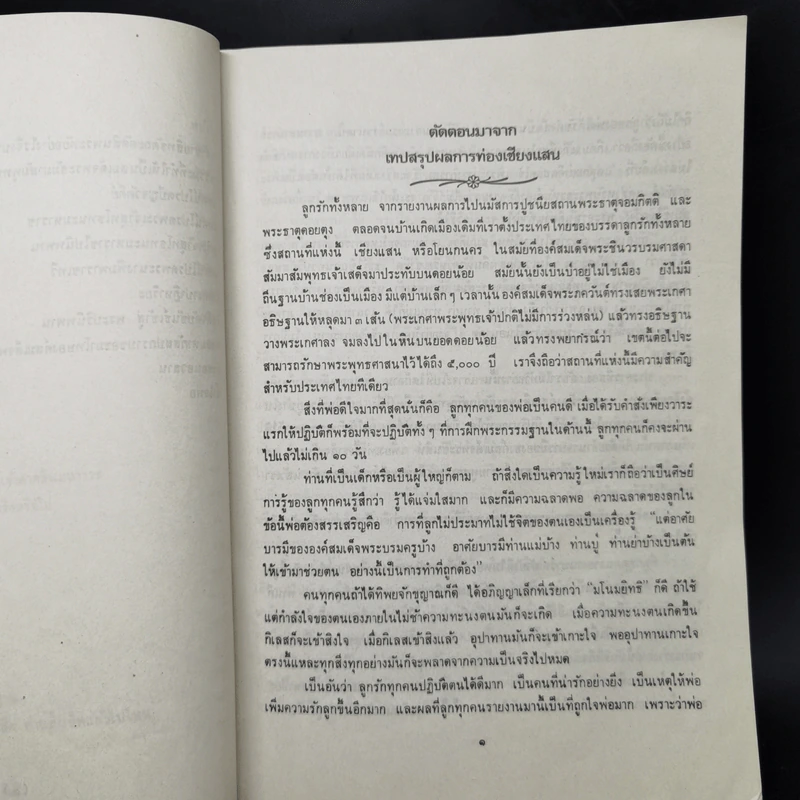 ตัดตอนมาจาก
เทปสรุปผลการท่องเชียงแสน
ลูกรักทั้งหลาย จากรายงานผลการไปนมัสการปูชนียสถานพระธาตุจอมกิตติ และ
พระธาตุดอยตุง ตลอดจนบ้านเกิดเมืองเดิมที่เราตั้งประเทศไทยของบรรดาลูกรักทั้งหลาย
ซึ่งสถานที่แห่งนี้ เชียงแสน หรือโยนกนคร ในสมัยที่องค์สมเด็จพระชินวรบรมศาสดา
สัมมาสัมพุทธเจ้าเสด็จมาประทับบนดอยน้อย สมัยนั้นยังเป็นป่าอยู่ไม่ใช่เมือง ยังไม่มี
ถิ่นฐานบ้านช่องเป็นเมือง มีแต่บ้านเล็กๆ เวลานั้นองค์สมเด็จพระภควันต์ทรงเสยพระเกศา
อธิษฐานให้หลุดมา ๓ เส้น (พระเกศาพระพุทธเจ้าปกติไม่มีการร่วงหล่น) แล้วทรงอธิษฐาน
วางพระเกศาลง จมลงไปในหินบนยอดดอยน้อย แล้วทรงพยากรณ์ว่า เขตนี้ต่อไปจะ
สามารถรักษาพระพุทธศาสนาไว้ได้ถึง ๕,๐๐๐ ปี เราจึงถือว่าสถานที่แห่งนี้มีความสำคัญ
สำหรับประเทศไทยทีเดียว
สิ่งที่พ่อดีใจมากที่สุดนั่นก็คือ ลูกทุกคนของพ่อเป็นคนดี เมื่อได้รับคำสั่งเพียงวาระ
แรกให้ปฏิบัติก็พร้อมที่จะปฏิบัติทั้งๆ ที่การฝึกพระกรรมฐานในด้านนี้ ลูกทุกคนก็คงจะผ่าน
ไปแล้วไม่เกิน ๑๐ วัน
ท่านที่เป็นเด็กหรือเป็นผู้ใหญ่ก็ตาม ถ้าสิ่งใดเป็นความรู้ใหม่เราก็ถือว่าเป็นศิษย์
การรู้ของลูกทุกคนรู้สึกว่า รู้ได้แจ่มใสมาก และก็มีความฉลาดพอ ความฉลาดของลูกใน
ข้อนี้พ่อต้องสรรเสริญคือ การที่ลูกไม่ประมาทไม่ใช้จิตของตนเองเป็นเครื่องรู้ “แต่อาศัย
บารมีขององค์สมเด็จพระบรมครูบ้าง อาศัยบารมีท่านแม่บ้าง ท่านปู่ ท่านย่าบ้างเป็นต้น
ให้เข้ามาช่วยตน อย่างนี้เป็นการทำที่ถูกต้อง”
คนทุกคนถ้าได้ทิพยจักขุญาณก็ดี ได้อภิญญาเล็กที่เรียกว่า “มโนมยิทธิ” ก็ดี ถ้าใช้
แต่กำลังใจของตนเองภายในไม่ช้าความทะนงตนมันก็จะเกิด เมื่อความทะนงตนเกิดขึ้น
กิเลสก็จะเข้าสิงใจ เมื่อกิเลสเข้าสิงแล้ว อุปาทานมันก็จะเข้าเกาะใจ พออุปาทานเกาะใจ
ตรงนี้แหละทุกสิ่งทุกอย่างมันก็จะพลาดจากความเป็นจริงไปหมด
เป็นอันว่า ลูกรักทุกคนปฏิบัติตนได้ดีมาก เป็นคนที่น่ารักอย่างยิ่ง เป็นเหตุให้พ่อ
เพิ่มความรักลูกขึ้นอีกมาก และผลที่ลูกทุกคนรายงานมานี้เป็นที่ถูกใจพ่อมาก เพราะว่าพ่อ
๑